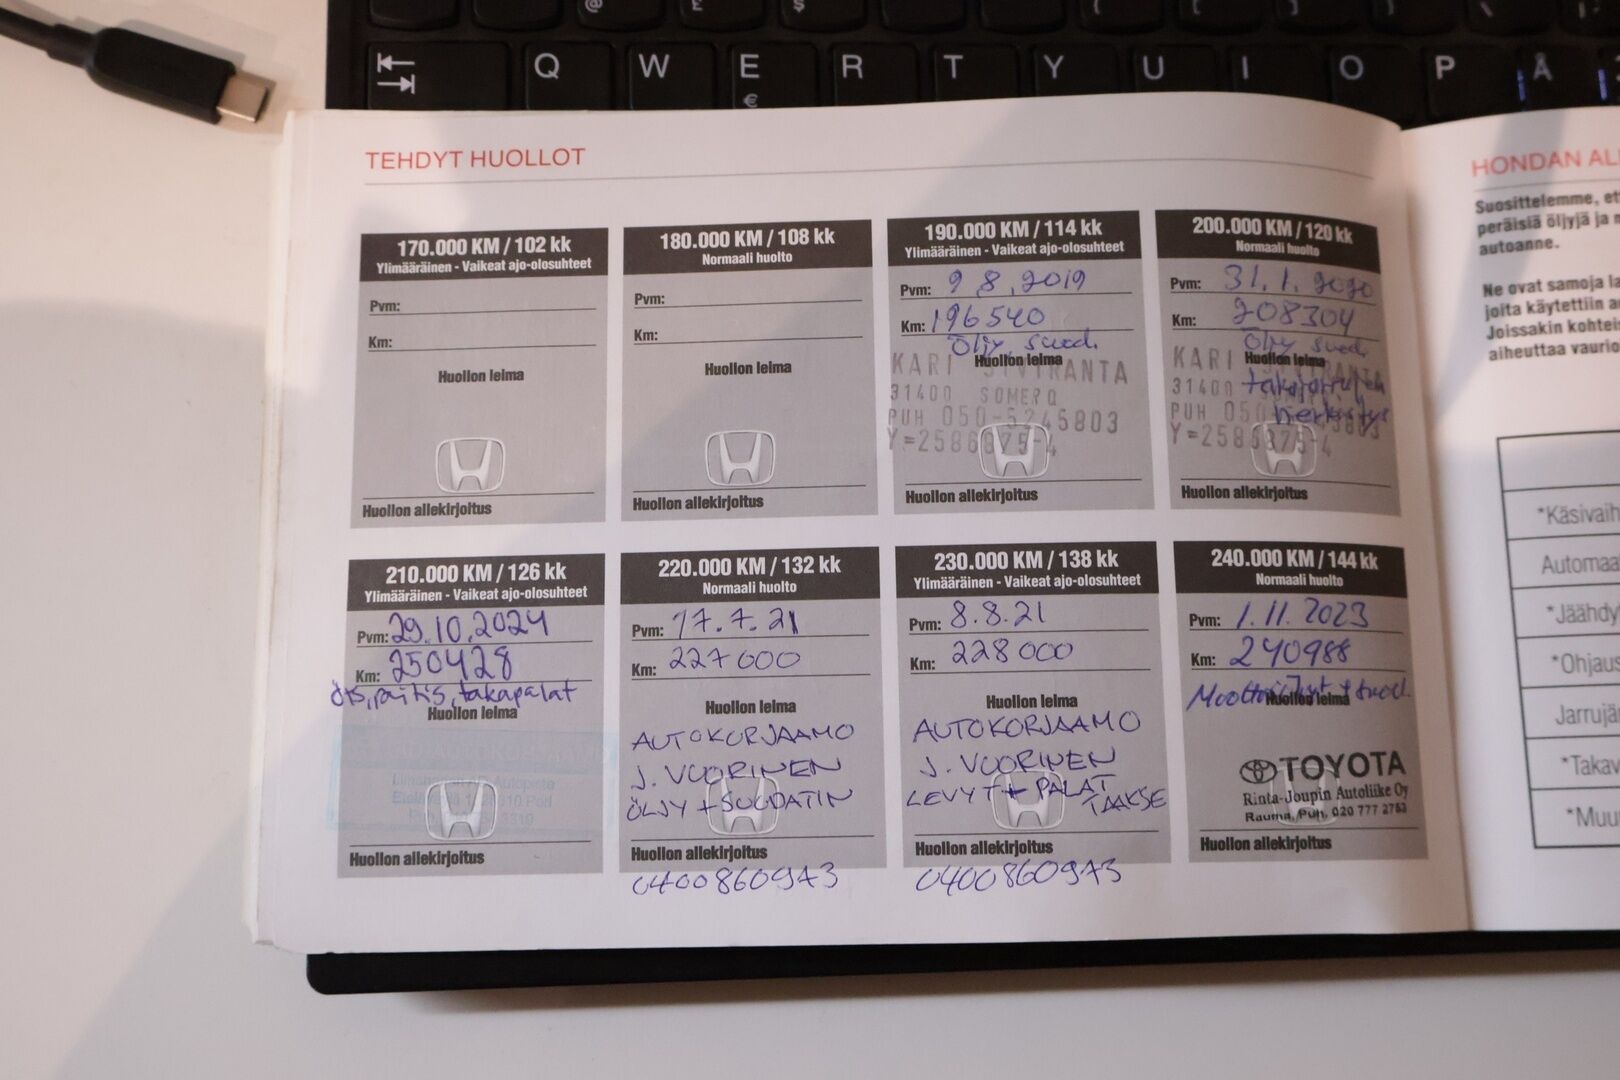 Q W E R T Y U I O P Å
€
TEHDYT HUOLLOT
170.000 KM / 102 kk
Ylimääräinen - Vaikeat ajo-olosuhteet
Pvm:
Km:
Huollon leima
Huollon allekirjoitus
180.000 KM / 108 kk
Normaali huolto
Pvm:
Km:
Huollon leima
Huollon allekirjoitus
190.000 KM / 114 kk
Ylimääräinen - Vaikeat ajo-olosuhteet
Pvm: 9 8.2019
Km: 196540
Öljy suod.
Huollon leima
KARI
31400 SOMERO
PUH 050-5245803
Y=2586875-4
Huollon allekirjoitus
200.000 KM / 120 kk
Normaali huolto
Pvm: 31.1.2020
Km: 208304
Öljy suod.
Huollon leima
KARI
31400
PUH 050
Y=2586875-4
Huollon allekirjoitus
210.000 KM / 126 kk
Ylimääräinen - Vaikeat ajo-olosuhteet
Pvm: 29.10.2024
Km: 250428
takapalat
Huollon leima
Huollon allekirjoitus
220.000 KM / 132 kk
Normaali huolto
Pvm: 17.7.21
Km: 227000
Huollon leima
AUTOKORJAAMO
J. VUORINEN
ÖLJY + SUODATIN
Huollon allekirjoitus
0400860973
230.000 KM / 138 kk
Ylimääräinen - Vaikeat ajo-olosuhteet
Pvm: 8.8.21
Km: 228000
Huollon leima
AUTOKORJAAMO
J. VUORINEN
LEVYT + PALAT
TAAKSE
Huollon allekirjoitus
0400860973
240.000 KM / 144 kk
Normaali huolto
Pvm: 1.11.2023
Km: 240988
Moottoriöljyt + suod.
Huollon leima
TOYOTA
Rinta-Joupin Autoliike Oy
Rauma, Puh. 020 777 2752
Huollon allekirjoitus
HONDAN AL
Suosittelemme, et
peräisiä öljyjä ja n
autoanne.
Ne ovat samoja la
joita käytettiin a
Joissakin kohteis
aiheuttaa vaurio
*Käsivaih
Automaa
*Jäähdy
*Ohjaus
Jarrujär
*Takav
*Muu